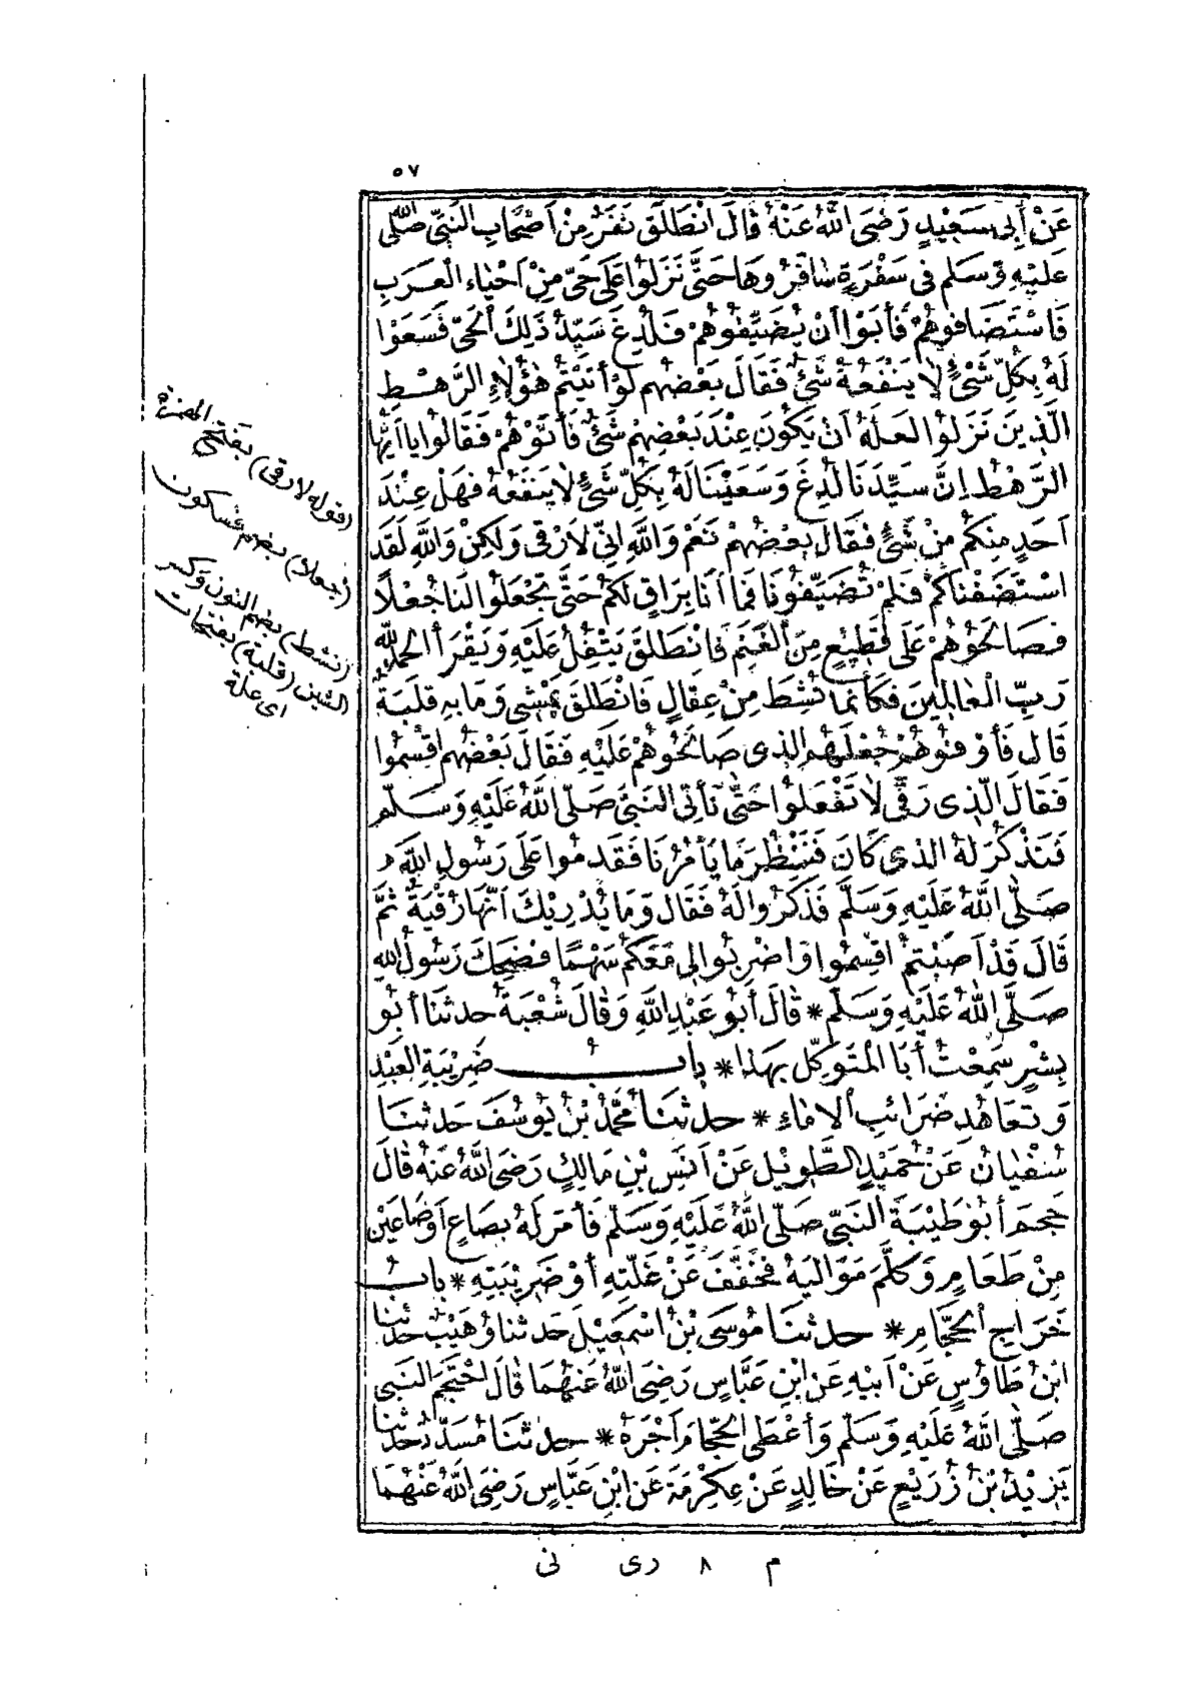 ٥٧
عَنْ أَبِى سَعِيْدٍ رَضِىَ اللّٰهُ عَنْهُ قَالَ انْطَلَقَ نَفَرٌ مِنْ اَصْحَابِ النَبِىِّ صَلّى اللّٰه
عَلَيْهِ وَسَلم فى سَفْرَةٍ سَافَرُوهَا حَتّى نَزَلُوْا عَلَى حَىّ مِنْ اَحْيَاءِ الْعَرَبِ
فَاسْتَضَافوهُمْ فَأبَوْا أنْ يُضَيِّفُوْهُمْ فَلُدِغَ سَيِّدُ ذَلِكَ الْحَىِّ فَسَعَوْا
لَهُ بِكُلِّ شَىْءٍ لَا يَنْفَعُهُ شَىْءٌ فَقَالَ بَعْضُهم لَوْ أتَيْتُمْ هَؤُلَاءِ الرَّهْطِ
الَّذِيْنَ نَزَلُوْا لعَلَّهُ اَنْ يَكُوْنَ عِنْدَ بَعْضِهِمْ شَىْءٌ فَأتَوْهُمْ فَقَالُوْا يَا اَيُّهَا
الرَّهْطُ اِنَّ سَيِّدَنَا لُدِغَ وَسَعَيْنَا لَهُ بِكُلِّ شَىْءٍ لَا يَنْفَعُهُ فَهَلْ عِنْدَ
اَحَدٍ مِنكُمْ مِنْ شَىْءٍ فَقَالَ بَعْضُهُمْ نَعَمْ وَاللّٰهِ اِنِّى لَاَرْقِى وَلَكِنْ وَاللّٰهِ لَقَد
اسْتَضَفْنَاكُمْ فَلَمْ تُضَيِّفُونَا فَمَا أَنَا بِرَاقٍ لكُمْ حَتَّى تَجْعَلُوْا لنَا جُعْلًا
فَصَالحَوُهُمْ عَلَى قَطِيْعٍ مِنَ الغَنَمِ فَانْطَلقَ يَتْفِلُ عَلَيْهِ وَيَقْرَأ الحمدُ للّٰهِ
رَبِّ الْعَالمِيْنَ فَكَأنّمَا نُشِطَ مِنْ عِقَالٍ فَانْطَلَقَ يَمْشِى وَمَا بِهِ قَلَبَةٌ
قَالَ فَأوْفَوْهُمْ جُعْلَهُم الذى صَالحُوْهُمْ عَلَيْهِ فَقَالَ بَعْضُهُم اقْسِمُوا
فَقَالَ الّذِى رَقَى لَا تَفْعَلُوْا حَتّى نَأتِىَ النَبِىَّ صَلّى اللّٰهُ عَلَيْهِ وَسَلّم
فَنَذْكُرَ لهُ الذى كَانَ فَنَنْظُرَ مَا يَأمُرُنَا فَقَدِمُوا عَلَى رَسُولِ اللّٰهِ
صَلّى اللّٰهُ عَلَيْهِ وَسَلَّمَ فَذَكَرُوا لَهُ فَقَالَ وَمَا يُدْرِيْكَ اَنَّهَا رُقْيَةٌ ثُمَّ
قَالَ قَدْ اَصَبْتُمْ اقْسِمُوا وَاضْرِبُوا لِى مَعَكُمْ سَهْمًا فَضَحِكَ رَسُولُ اللّٰهِ
صَلّى اللّٰهُ عَلَيْهِ وَسَلّمَ * قَالَ أبُو عَبْدِ اللّٰهِ وَقَالَ شُعْبَةُ حدثَنَا أبُو
بِشْرٍ سَمِعْتُ أبَا الْمُتَوَكِّلِ بِهَذَا * بابُ ضَرِيْبَةِ العَبْدِ
وَتعَاهُدِ ضَرَائِبِ الاِمَاءِ * حدثنَا مُحَمَّدُ بْنُ يُوْسُفَ حَدثنَا
سُفْيَانُ عَنْ حُمَيْدٍ الطَّوِيْلِ عَنْ اَنَسِ بْنِ مَالِكٍ رَضِىَ اللّٰهُ عَنْهُ قَالَ
حَجَمَ أبُوْ طَيْبَةَ النَبِىّ صَلّى اللّٰهُ عَلَيْهِ وَسَلّم فَأمَرَ لَهُ بصَاعٍ أَوْ صَاعَيْنِ
مِنْ طَعَامٍ وَكَلَّمَ مَوَالِيَهُ فَخَفَّفَ عَنْ غَلّتِهِ أوْ ضَرِيْبَتِهِ * بابُ
خَرَاجِ الحَجَّامِ * حدثنَا مُوسَى بْنُ اسْمَعِيْلَ حَدثنا وُهَيْبٌ حَدثَنا
ابْنُ طَاوُسٍ عَنْ اَبيْهِ عَن ابْنِ عَبَّاسٍ رَضِىَ اللّٰهُ عَنْهُمَا قَالَ احْتَجَمَ النَبِى
صَلّى اللّٰهُ عَلَيْهِ وَسَلّم وَأعْطَى الحَجَّامَ اَجْرَهُ * حدثنَا مُسَدّدٌ حَدثنَا
يَزِيْدُ بْنُ زُرَيْعٍ عَنْ خَالِدٍ عَنْ عِكْرِمَةَ عَن ابْنِ عَبَّاسٍ رَضِىَ اللّٰهُ عَنْهُمَا
(قوله لارقى) بفتح الهمزة
(جعلا) بضم فسكون
(نشط) بضم النون وكسر
الشين (قلبة) بفتحات
اى علة
م ٨ رى نى